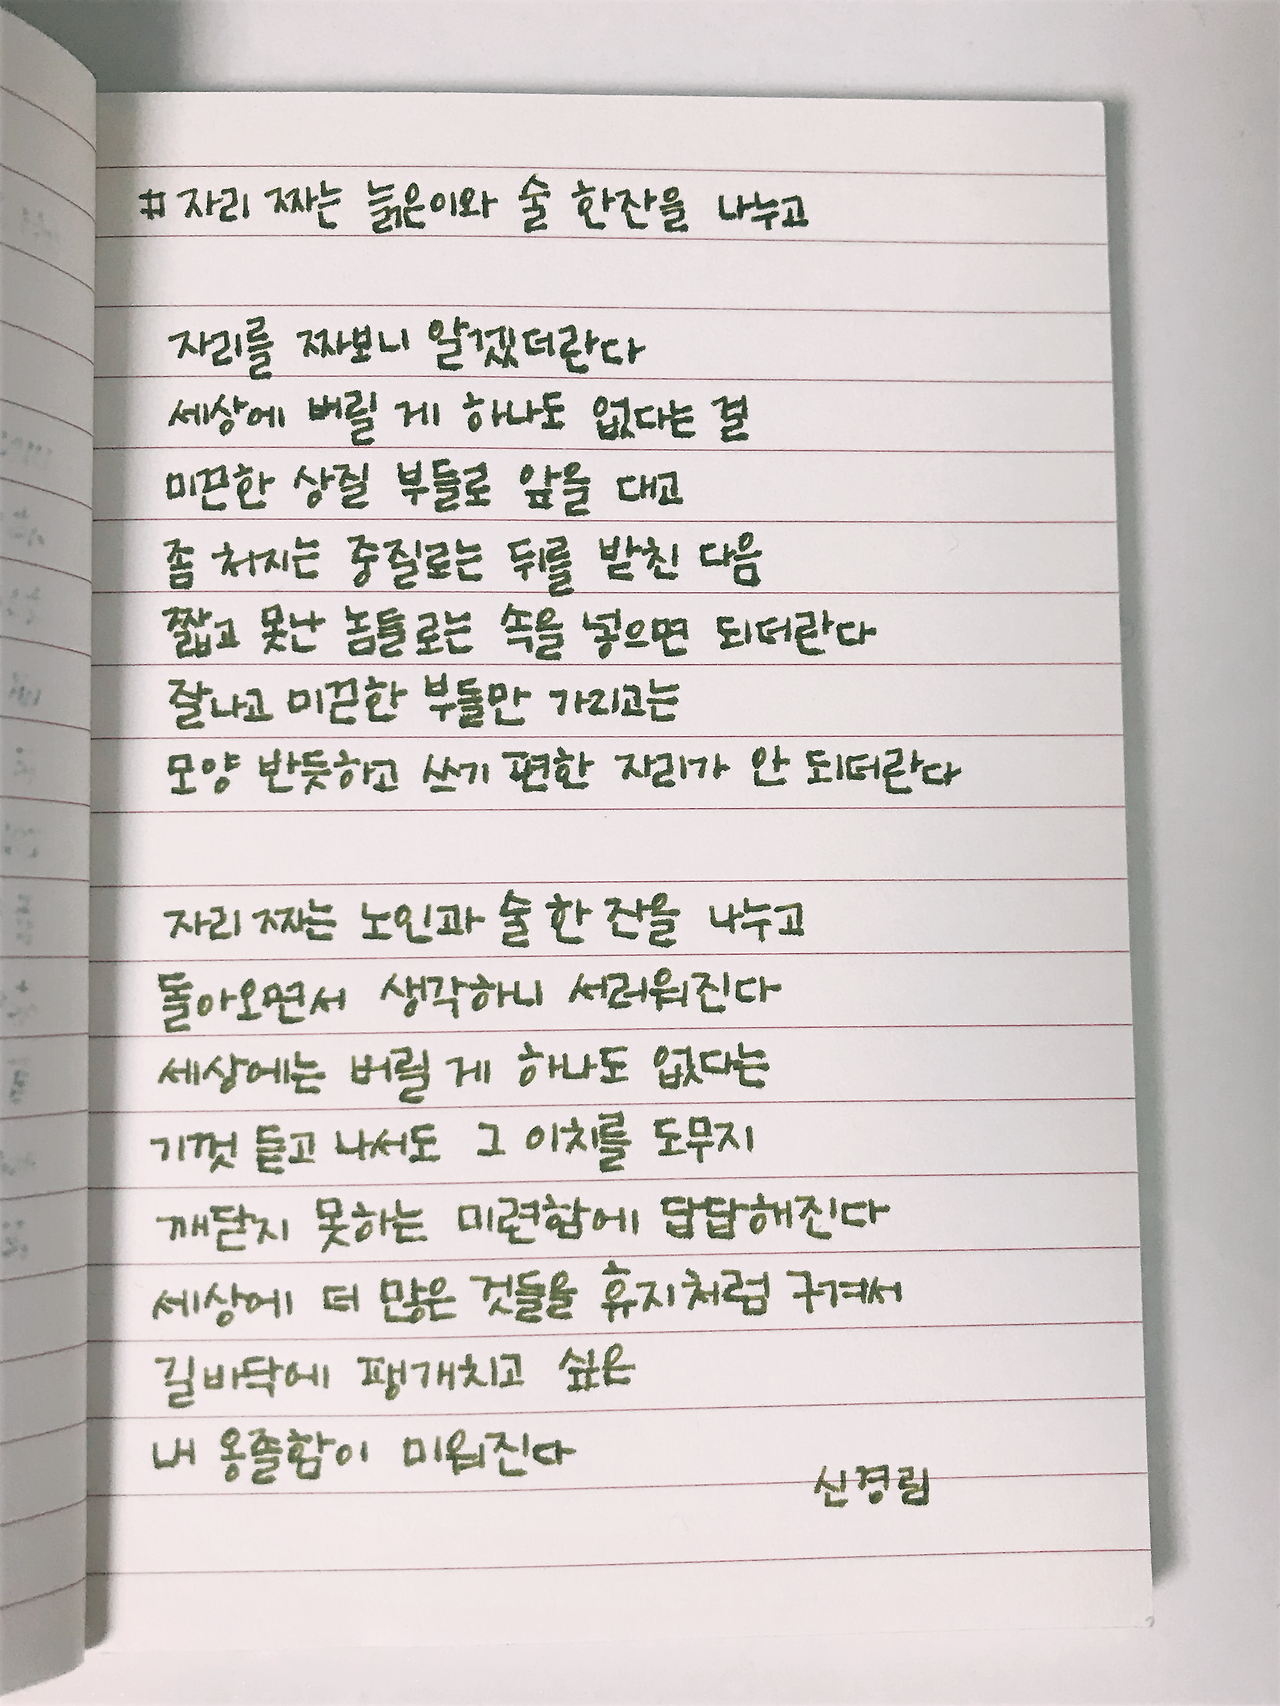 # 자리 짜는 늙은이와 술 한잔을 나누고
자리를 짜보니 알겠더란다
세상에 버릴 게 하나도 없다는 걸
미끈한 상질 부들로 앞을 대고
좀 처지는 중질로는 뒤를 받친 다음
짧고 못난 놈들로는 속을 넣으면 되더란다
잘나고 미끈한 부들만 가리고는
모양 반듯하고 쓰기 편한 자리가 안 되더란다
자리 짜는 노인과 술 한 잔을 나누고
돌아오면서 생각하니 서러워진다
세상에는 버릴 게 하나도 없다는
기껏 듣고 나서도 그 이치를 도무지
깨닫지 못하는 미련함에 답답해진다
세상에 더 많은 것들을 휴지처럼 구겨서
길바닥에 팽개치고 싶은
내 옹졸함이 미워진다
신경림